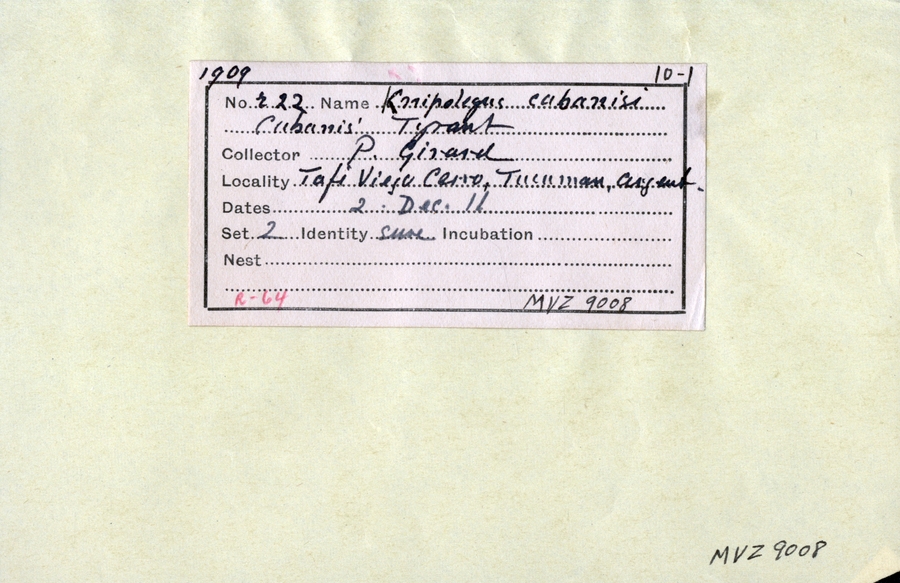 1909 10-1
No. r 22 Name Knipolegus cabanisi
Cabanis' Tyrant
Collector P. Girard
Locality Tafi Viejo Cerro, Tucuman, Argent.
Dates 2. Dec. 11
Set 2 Identity sure Incubation
Nest
R-64 MVZ 9008
MVZ 9008